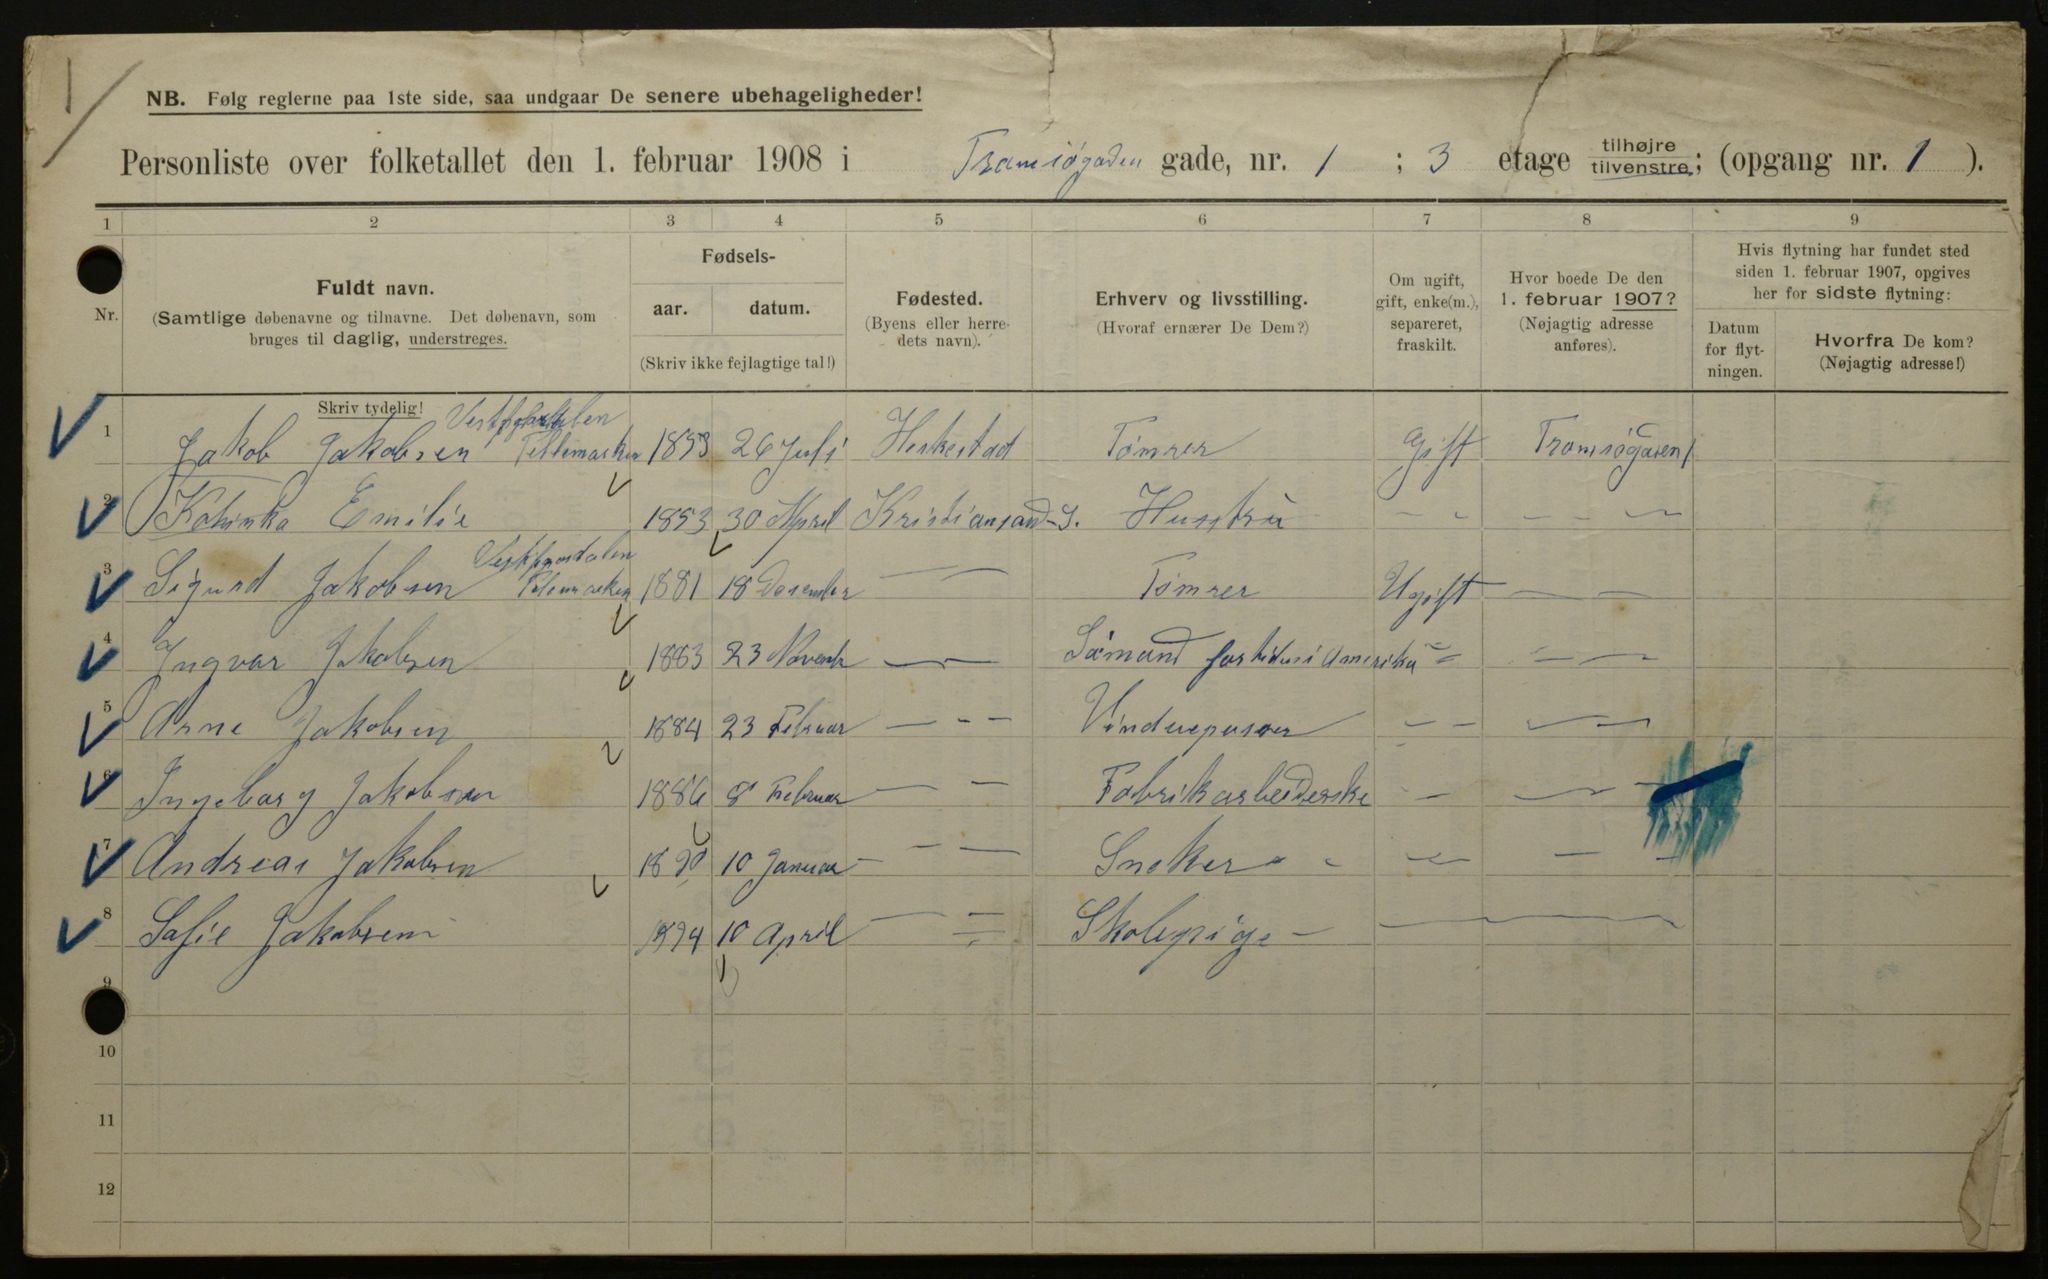 1
NB. Følg reglerne paa 1ste side, saa undgaar De senere ubehageligheder!
Personliste over folketallet den 1. februar 1908 i Tromsøgaden gade, nr. 1 ; 3 etage tilhøjre tilvenstre; (opgang nr. 1 ).
1 2 3 4 5 6 7 8 9
Nr.
Fuldt navn.
(Samtlige døbenavne og tilnavne. Det døbenavn, som
bruges til daglig, understreges.
Skriv tydelig!
Fødsels-
aar. datum.
(Skriv ikke fejlagtige tal!)
Fødested.
(Byens eller herre-
dets navn).
Erhverv og livsstilling.
(Hvoraf ernærer De Dem?)
Om ugift,
gift, enke(m.),
separeret,
fraskilt.
Hvor boede De den
1. februar 1907?
(Nøjagtig adresse
anføres).
Hvis flytning har fundet sted
siden 1. februar 1907, opgives
her for sidste flytning:
Datum
for flyt-
ningen.
Hvorfra De kom?
(Nøjagtig adresse!)
1 Jakob Jakobsen Tellemarken 1853 26 Juli Heskestad Tømrer Gift Tromsøgaden 1
2 Kathinka Emilie 1853 30 April Kristiansand S. Hustru
3 Sigurd Jakobsen Telemarken 1881 18 Desember Tømrer Ugift
4 Ingvar Jakobsen 1883 23 Novemb Sømand for tiden i Amerika
5 Arne Jakobsen 1884 23 Februar Vinduepusser
6 Ingeborg Jakobsen 1886 8 Februar Fabrikarbeiderske
7 Andreas Jakobsen 1890 10 Januar Sneker
8 Sofie Jakobsen 1894 10 April Skolepige
9
10
11
12